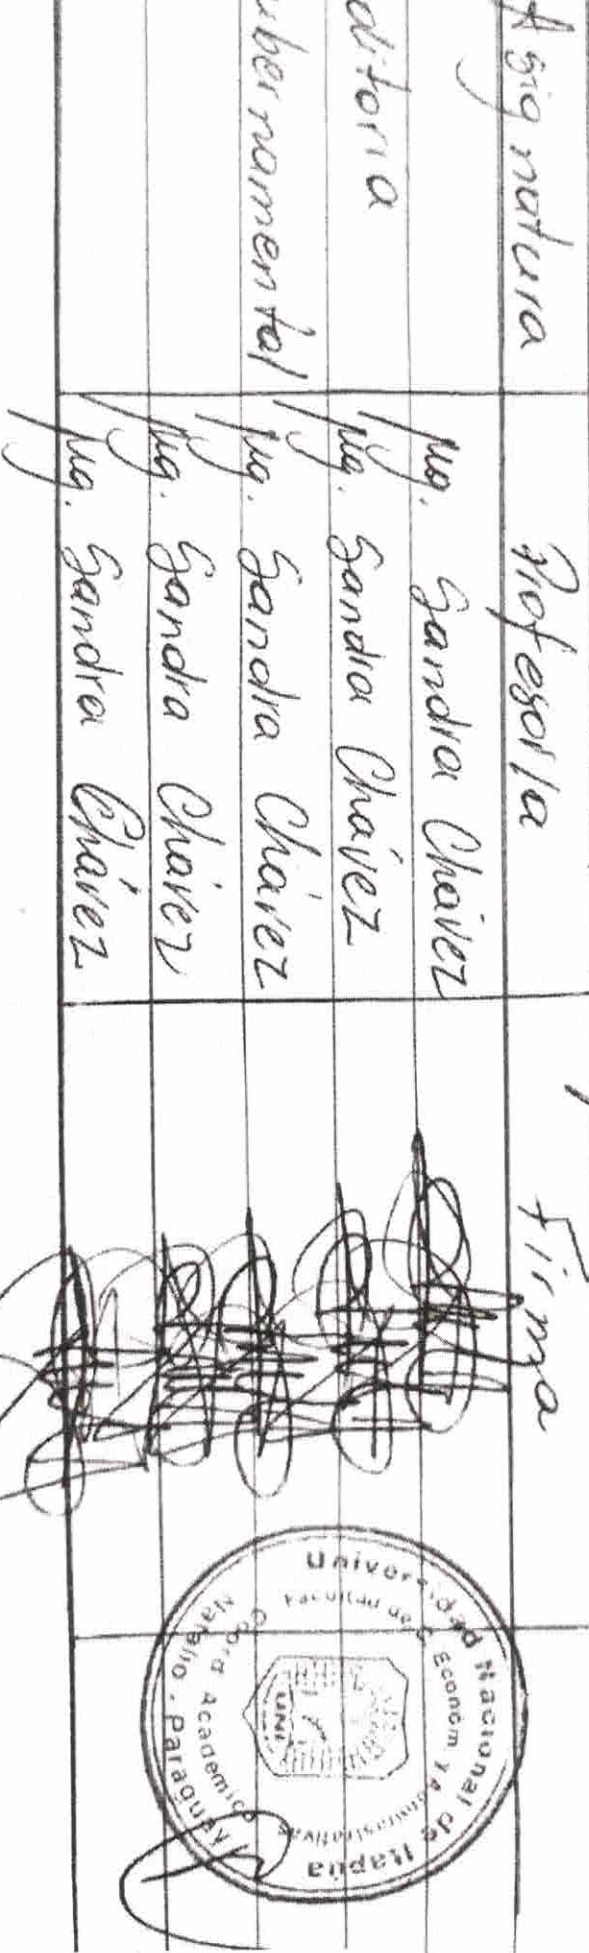 Asignatura Profesor/a Firma
Mg. Sandra Chávez
ditoria Mg. Sandra Chávez
bernamental Mg. Sandra Chávez
Mg. Sandra Chávez
Mg. Sandra Chávez
Universidad Nacional de Itapúa
Facultad de Econom y Administrativas
Coord Academica
Natalio . Paraguay
UNI